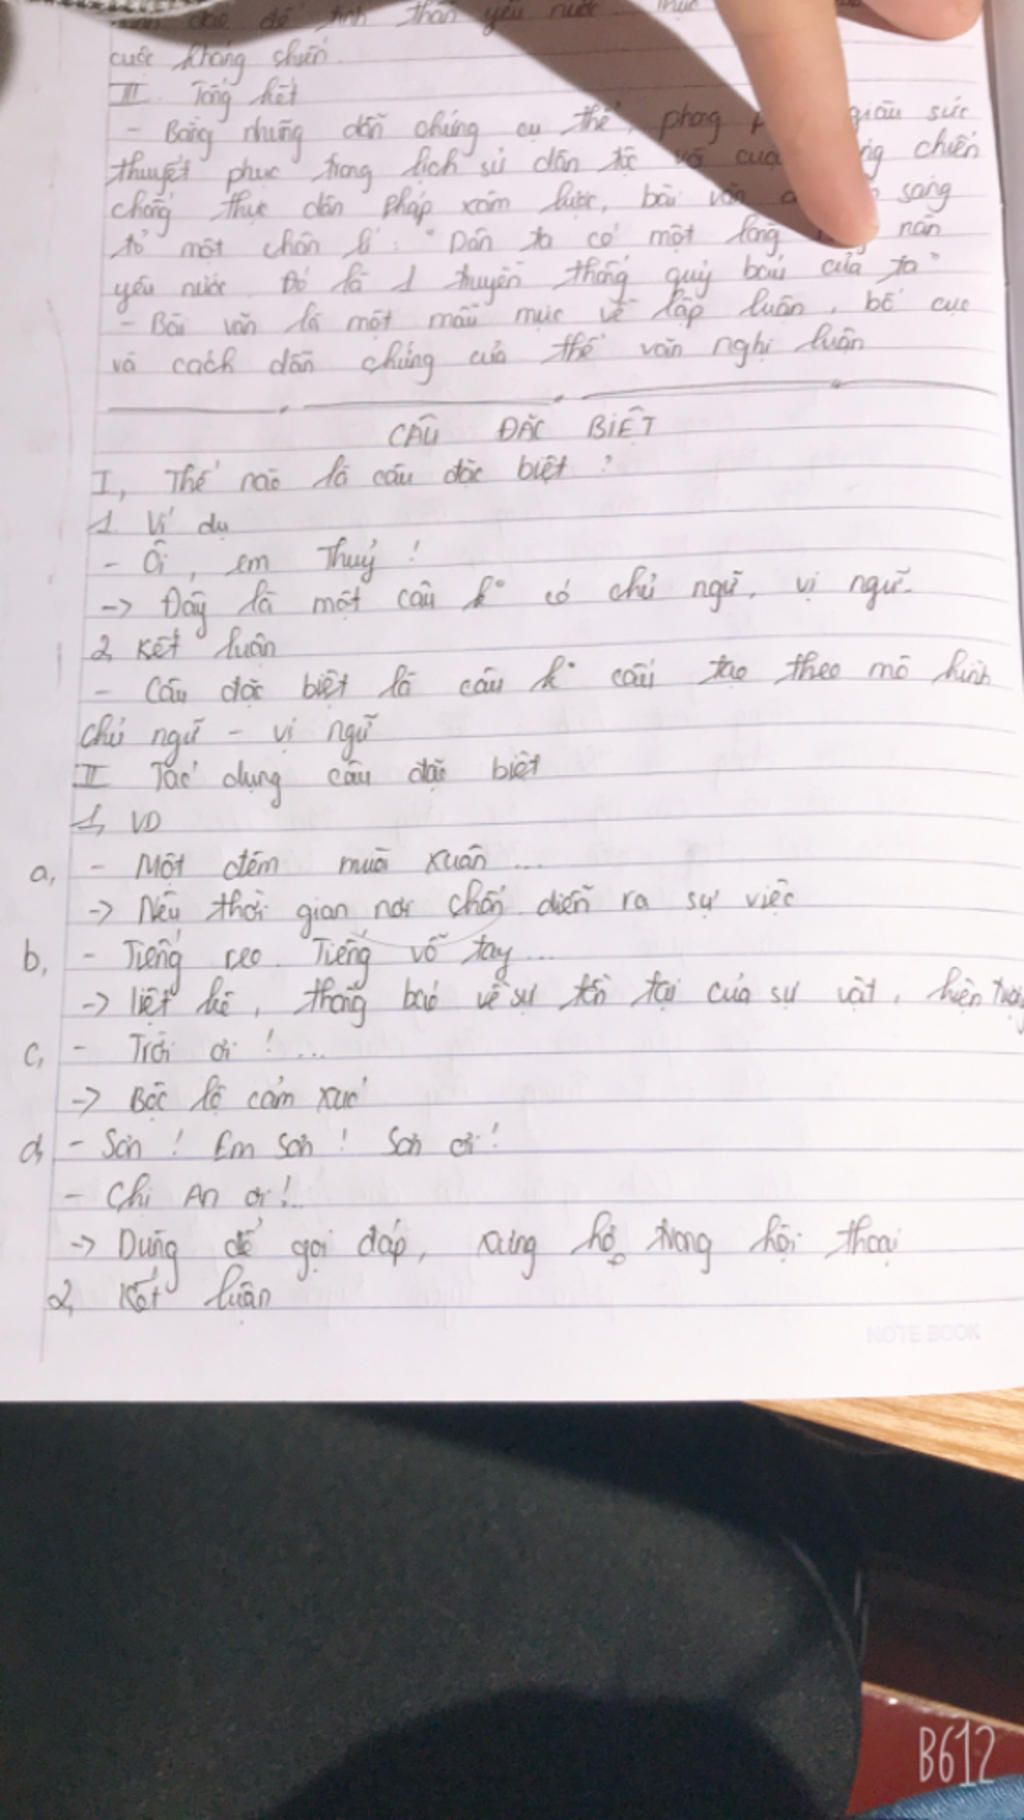 để tinh thần yêu nước
cuộc kháng chiến.
III. Tổng kết
- Bằng những dẫn chứng cụ thể, phong giàu sức
thuyết phục trong lịch sử dân tộc và chiến
chống thực dân Pháp xâm lược, bài văn sáng
tỏ một chân lí: "Dân ta có một lòng nàn
yêu nước. Đó là 1 truyền thống quý báu của ta"
- Bài văn là một mẫu mực về lập luận, bố cục
và cách dẫn chứng của thể văn nghị luận
CÂU ĐẶC BIỆT
I, Thế nào là câu đặc biệt?
1. Ví dụ
- Ôi, em Thuỷ!
-> Đây là một câu k° có chủ ngữ, vị ngữ.
2, Kết luận
- Câu đặc biệt là câu k° cấu tạo theo mô hình
chủ ngữ - vị ngữ
II Tác dụng câu đặc biệt
1, VD
a, - Một đêm mùa xuân ...
-> Nêu thời gian nơi chốn diễn ra sự việc
b, - Tiếng reo. Tiếng vỗ tay...
-> liệt kê, thông báo về sự tồn tại của sự vật, hiện tượng
c, - Trời ơi! ...
-> Bộc lộ cảm xúc
d, - Sơn! Em Sơn! Sơn ơi!
- Chị An ơi!..
-> Dùng để gọi đáp, xưng hô trong hội thoại
2, Kết luận
NOTE BOOK
B612